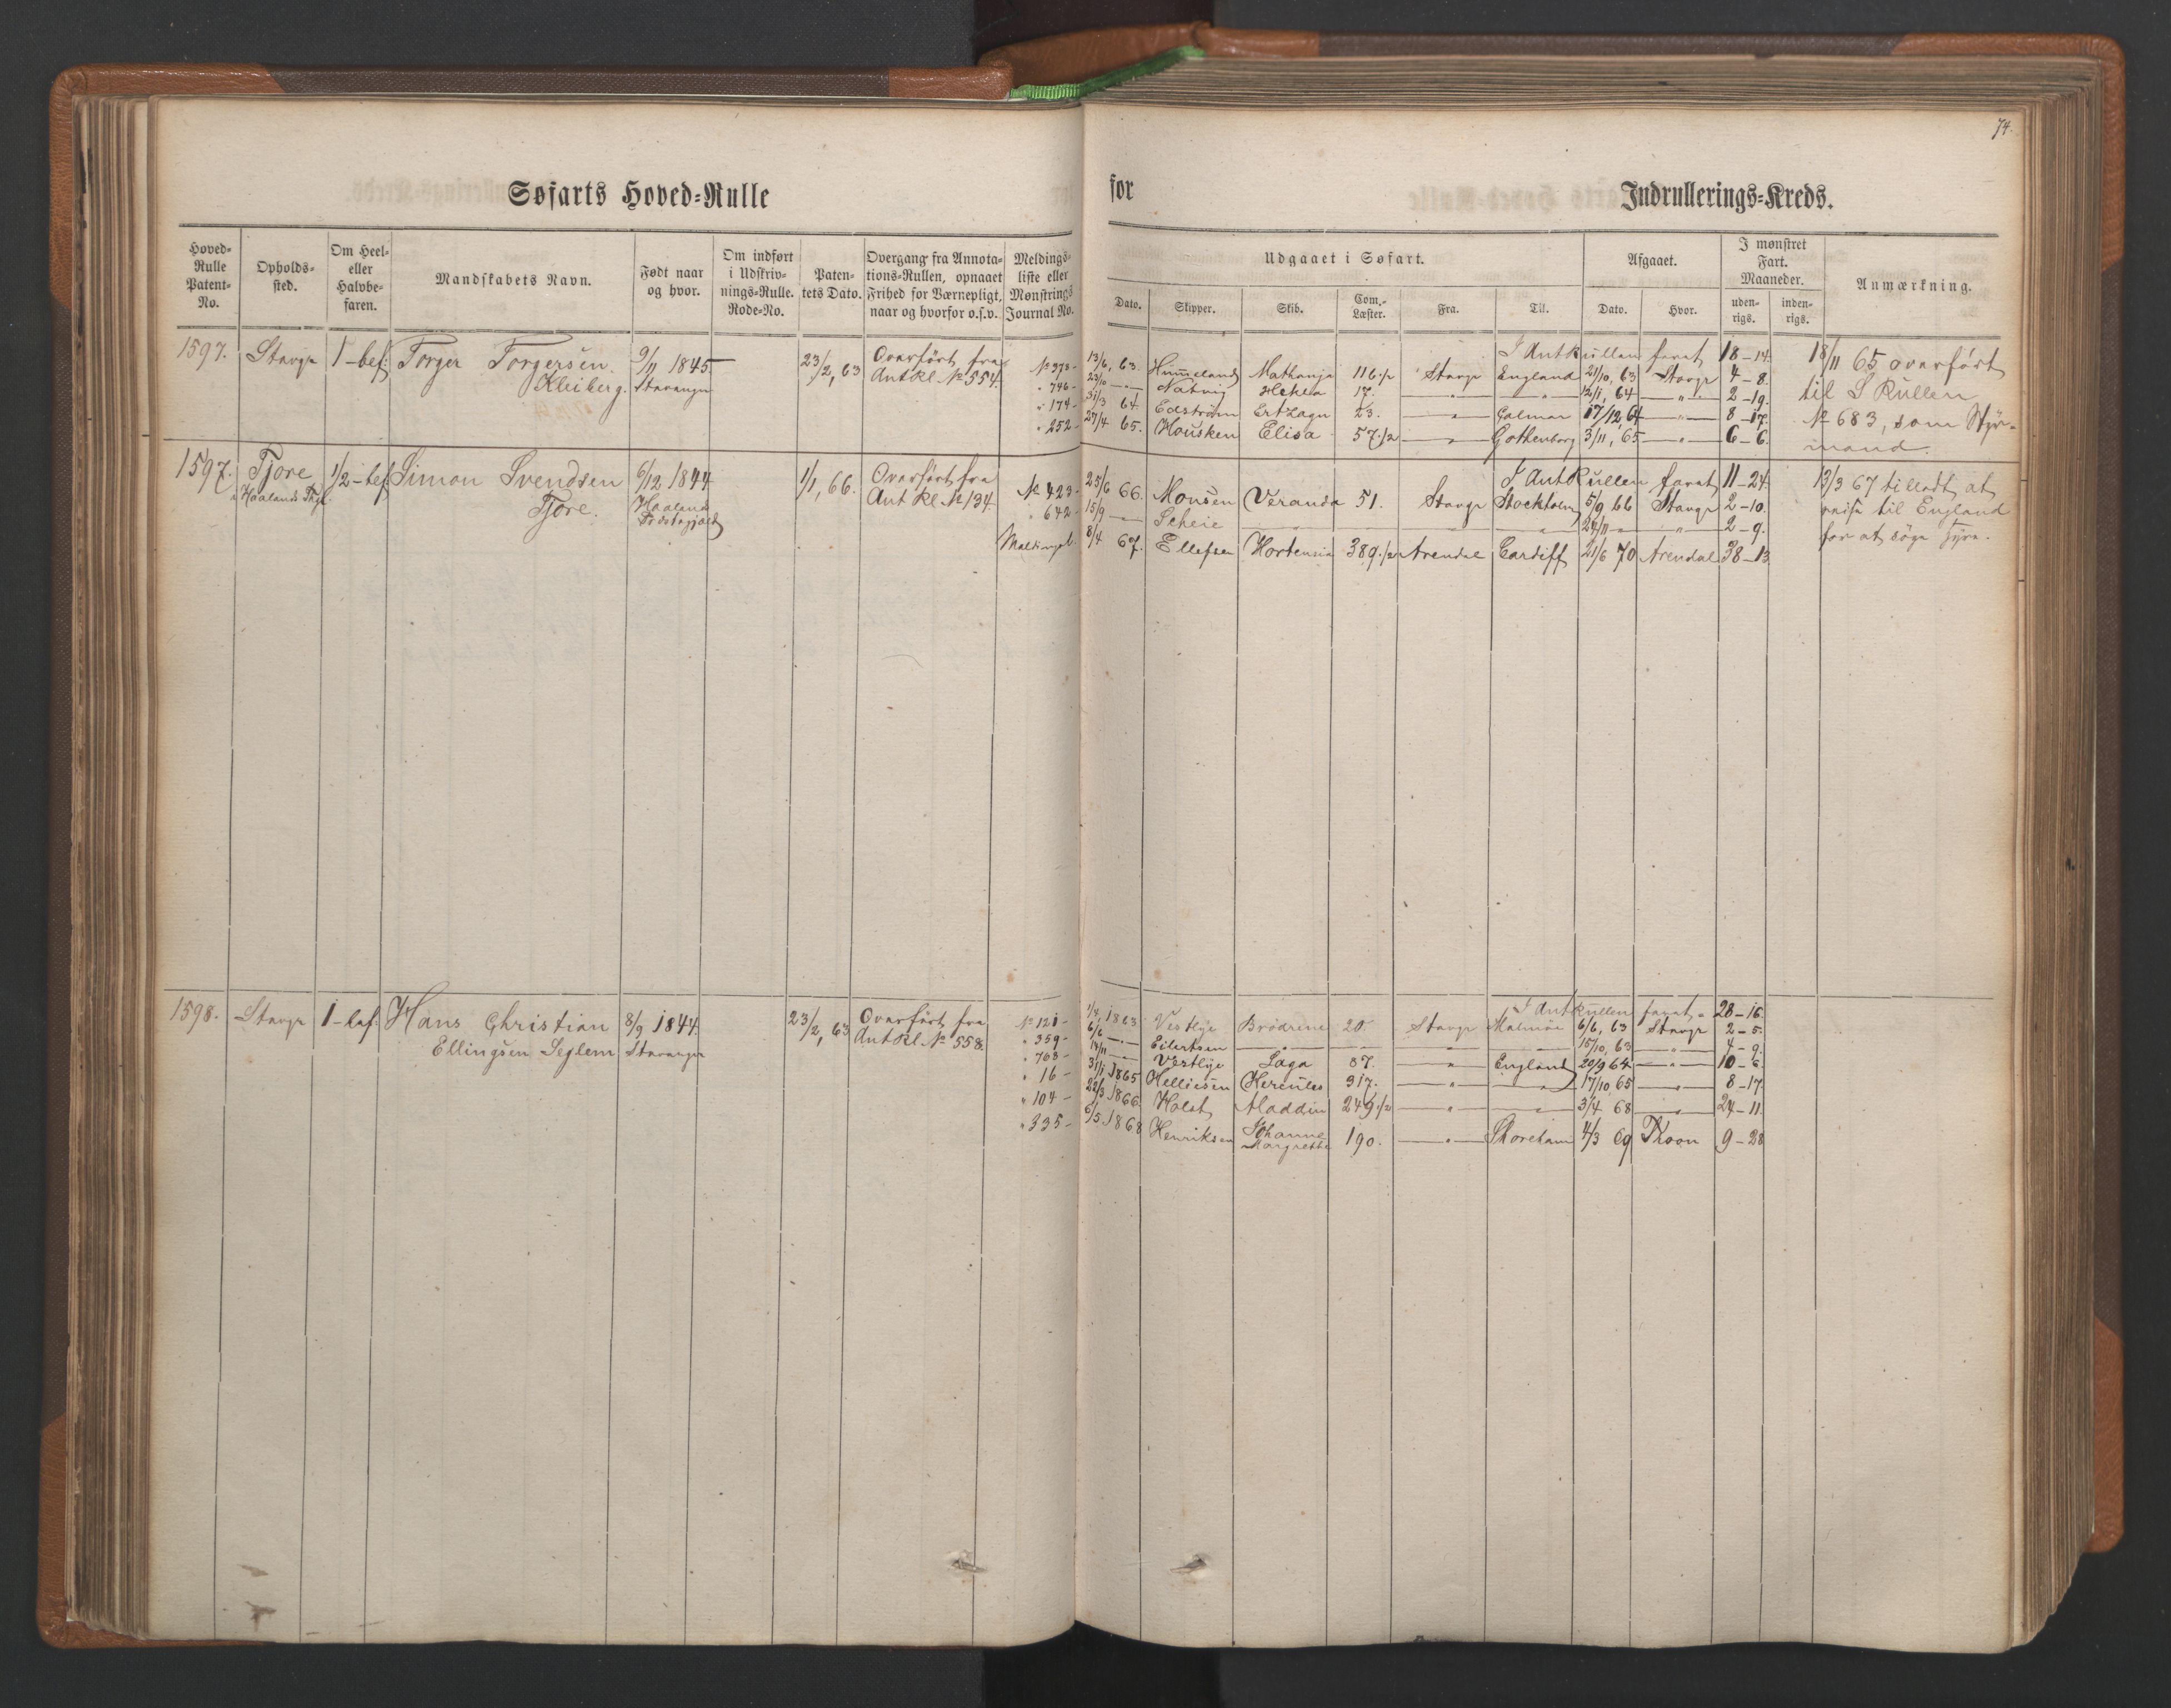 74.
Søfarts Hoved-Rulle for Indrullerings-Kreds.
Hoved-Rulle Patent-No. Opholds-sted. Om Heel- eller Halvbe-faren. Mandskabets Navn. Født naar og hvor. Om indført i Udskriv-nings-Rulle. Rode-No. Paten-tets Dato. Overgang fra Annota-tions-Rullen, opnaaet Frihed for Værnepligt, naar og hvorfor o.s.v. Meldings-liste eller Mønstrings Journal No.
Udgaaet i Søfart. Afgaaet. I mønstret Fart. Maaneder. Anmærkning.
Dato. Skipper. Skib. Com.-Læster. Fra. Til. Dato. Hvor. uden-rigs. inden-rigs.
1597. Stavgr 1-bef: Torger Torgersen 9/11 1845 23/2, 63 Overført fra
Kleiberg. Stavanger Ant Rl. No 554
I AntRullen faret 18-14.
No 373- 13/6, 63. Himmeland Nathanja 116 1/2 Stavgr England 21/10, 63 Stavgr 4-8.
" 746- 23/10 -"- Natvig Hekla 17. -"- -"- 12/11, 64 -"- 2-19.
" 174- 31/3 64 Edström Ertzagn 23. -"- Calmar 17/12, 64 -"- 8-17.
" 252- 27/4 65. Housken Elisa 57 1/2 -"- Gothenborg 3/11, 65 -"- 6-6.
18/11 65 overført
til S Rullen
No 683, som Styr-
mand.
1597. Tjore 1/2-bef Simon Svendsen 6/12 1844 1/1, 66. Overført fra
Haalands Thgl. Tjore. Haaland Ant Rl. No 134
Præstegjæld
I AntRullen faret 11-24.
No 423- 25/6 66. Monsen Veranda 51. Stavgr Stockholm 5/9 66 Stavgr 2-10.
" 642- 15/9 -"- Scheie -"- -"- -"- 24/11 -"- -"- 2-9.
Meldingsl. 8/4 67. Ellefsen Hortensia 389 1/2 Arendal Cardiff 21/6 70 Arendal 38-13
13/3 67 tilladt at
reise til England
for at søge Hyre.
1598. Stavgr 1-bef: Hans Christian 8/9 1844. 23/2, 63 Overført fra
Ellingsen Seglem Stavanger Ant Rl. No 558.
I AntRullen faret 28-16.
No 121- 1/4, 1863 Vestlye Brødrene 20. Stavgr Malmöe 6/6, 63 Stavgr 2-5.
" 359- 6/6 -"- Eilertsen -"- -"- -"- 15/10, 63 -"- 4-9.
" 763- 14/11 -"- Vestlye Saga 87. -"- England 20/9 64 -"- 10-6.
" 16- 31/1 1865 Helliesen Hercules 317. -"- -"- 17/10 65 -"- 8-17
" 104- 22/3 1866. Holst Aladdin 249 1/2 -"- -"- 3/4 68 -"- 24-11.
" 335- 6/5 1868 Henriksen Johanne Margrethe 190. -"- Shoreham 4/3 69 Thoon 9-28